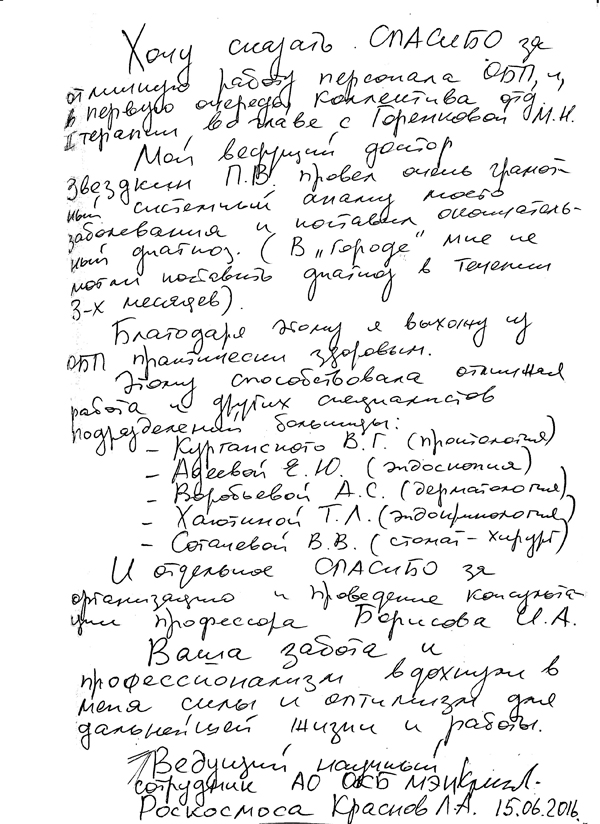 Хочу сказать СПАСИБО за
отличную работу персонала ОБП, и,
в первую очередь, коллектива отд.
I терапии, во главе с Горенковой М.Н.
Мой ведущий доктор
Звездкин П.В. провел очень грамот-
ный системный анализ моего
заболевания и поставил окончатель-
ный диагноз. (В „Городе" мне не
могли поставить диагноз в течении
3-х месяцев).
Благодаря этому я выхожу из
ОБП практически здоровым.
Этому способствовала отличная
работа и других специалистов
подразделений больницы:
– Курганского В.Г. (проктология)
– Адеевой Е.Ю. (эндоскопия)
– Воробьевой А.С. (дерматология)
– Хаютиной Т.Л. (эндокринология)
– Сотачевой В.В. (стомат-хирург)
И отдельное СПАСИБО за
организацию и проведение консульта-
ции профессора Борисова И.А.
Ваша забота и
профессионализм вдохнули в
меня силы и оптимизм для
дальнейшей жизни и работы.
Ведущий научный
сотрудник АО ОКБ МЭИ
Роскосмоса Краснов Л.А. 15.06.2016.